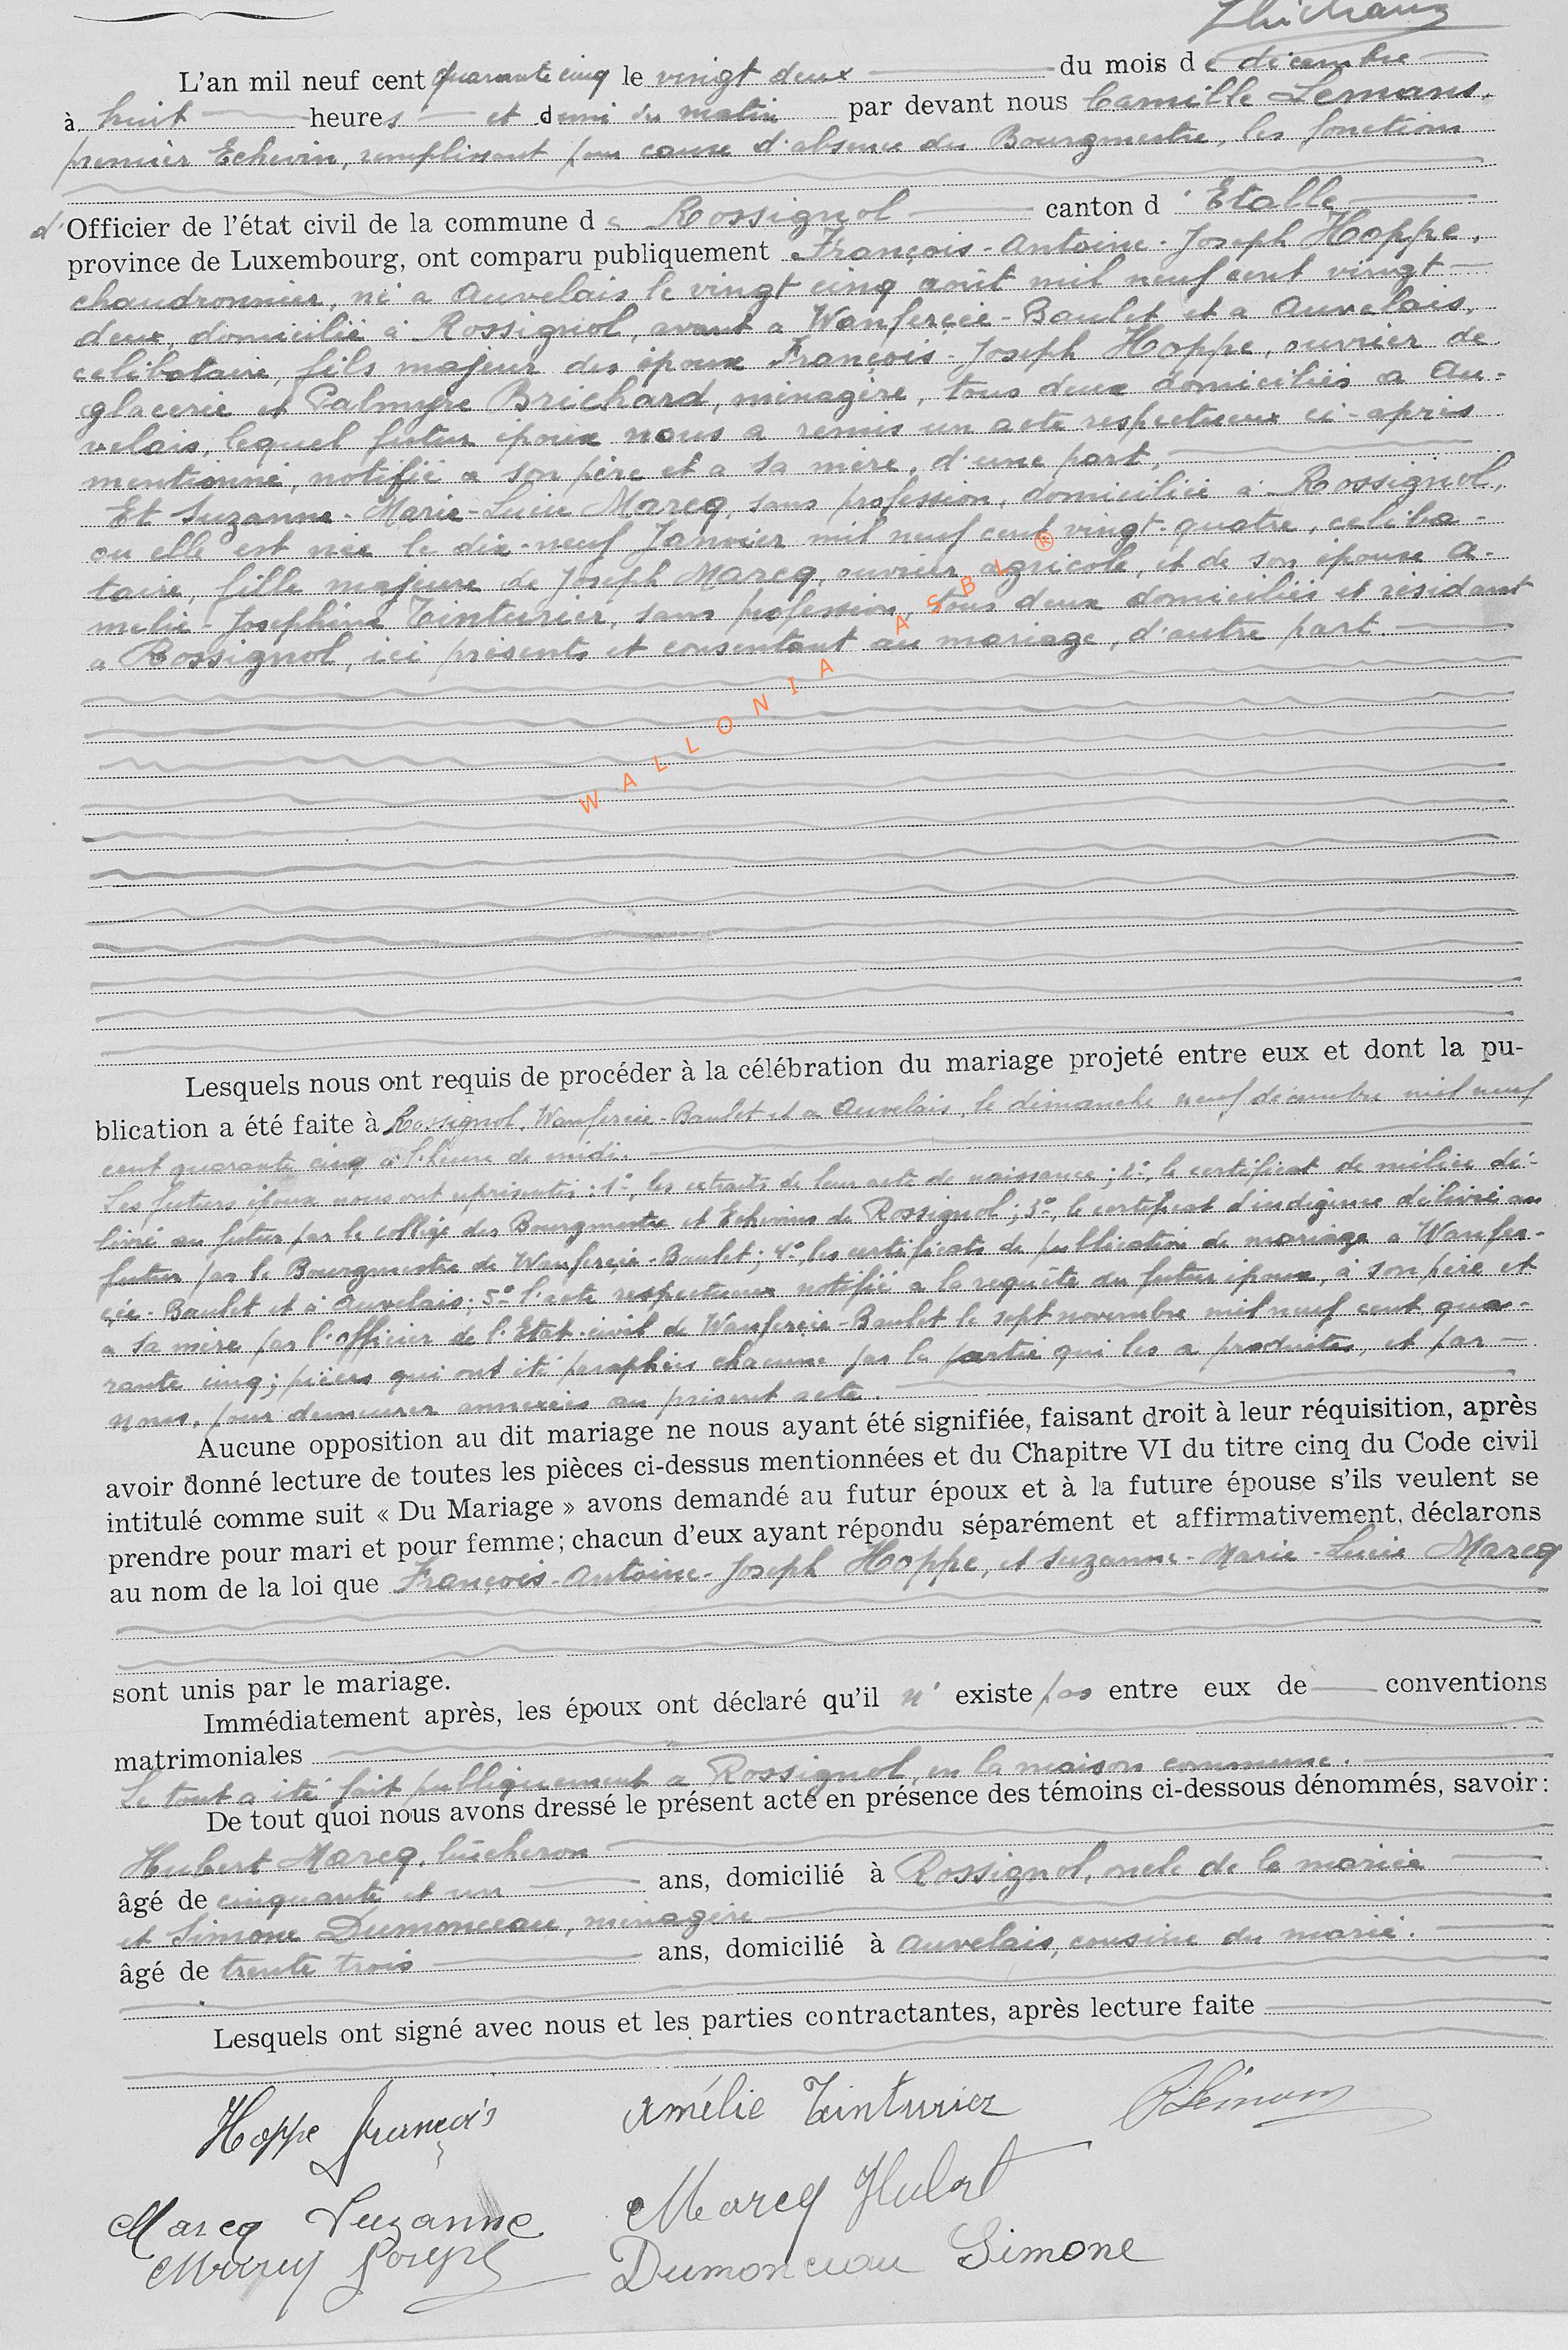 L'an mil neuf cent quarante cinq le vingt deux du mois de décembre
à huit heures et demi du matin par devant nous Camille Lemans,
premier Echevin, remplissant pour cause d'absence du Bourgmestre, les fonctions
d'Officier de l'état civil de la commune de Rossignol canton d'Etalle
province de Luxembourg, ont comparu publiquement François-Antoine-Joseph Hoppe,
chaudronnier, né a Auvelais le vingt cinq août mil neuf cent vingt-
deux, domicilié à Rossignol, avant a Wanfercée-Baulet et a Auvelais,
celibataire, fils majeur des époux François-Joseph Hoppe, ouvrier de
glacerie et Palmyre Brichard, ménagère, tous deux domiciliés a Au-
velais, lequel futur époux nous a remis un acte respectueux ci-après
mentionné, notifié a son père et a sa mère, d'une part,
Et Suzanne-Marie-Lucie Marcq, sans profession, domiciliée à Rossignol,
ou elle est née le dix-neuf Janvier mil neuf cent vingt-quatre, céliba-
taire, fille majeure de Joseph Marcq, ouvrier agricole, et de son épouse A-
melie-Josephine Tinturier, sans profession, tous deux domiciliés et résidant
a Rossignol, ici présents et consentant au mariage, d'autre part.
WALLONIA ASBL ®
Lesquels nous ont requis de procéder à la célébration du mariage projeté entre eux et dont la pu-
blication a été faite à Rossignol, Wanfercée-Baulet et a Auvelais, le dimanche neuf décembre mil neuf
cent quarante cinq à l'heure de midi.
Les futurs époux nous ont représentés : 1°, les extraits de leur acte de naissance ; 2°, le certificat de milice dé-
livré au futur par le collège des Bourgmestre et Echevins de Rossignol ; 3°, le certificat d'indigence délivré au
futur par le Bourgmestre de Wanfercée-Baulet ; 4°, les certificats de publication de mariage a Wanfer-
cée-Baulet et à Auvelais ; 5° l'acte respectueux notifié a la requête du futur époux, à son père et
a sa mère par l'officier de l'Etat-civil de Wanfercée-Baulet le sept novembre mil neuf cent qua-
rante cinq ; pièces qui ont été paraphées chacune par la partie qui les a produites, et par
nous, pour demeurer annexées au présent acte.
Aucune opposition au dit mariage ne nous ayant été signifiée, faisant droit à leur réquisition, après
avoir donné lecture de toutes les pièces ci-dessus mentionnées et du Chapitre VI du titre cinq du Code civil
intitulé comme suit « Du Mariage » avons demandé au futur époux et à la future épouse s'ils veulent se
prendre pour mari et pour femme ; chacun d'eux ayant répondu séparément et affirmativement, déclarons
au nom de la loi que François-Antoine-Joseph Hoppe, et Suzanne-Marie-Lucie Marcq
sont unis par le mariage.
Immédiatement après, les époux ont déclaré qu'il n'existe pas entre eux de conventions
matrimoniales
Le tout a été fait publiquement a Rossignol, en la maison commune.
De tout quoi nous avons dressé le présent acte en présence des témoins ci-dessous dénommés, savoir :
Hubert Marcq, bûcheron
âgé de cinquante et un ans, domicilié à Rossignol, oncle de la mariée
et Simone Dumonceau, ménagère
âgé de trente trois ans, domicilié à Auvelais, cousine du marié.
Lesquels ont signé avec nous et les parties contractantes, après lecture faite
Hoppe François Amélie Tinturier
Marcq Suzanne Marcq Hubert
Marcq Joseph Dumonceau Simone